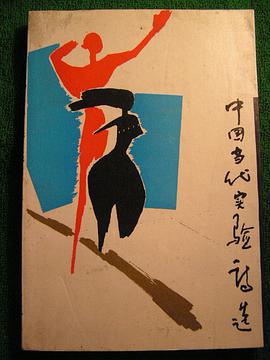 中国当代实验诗选